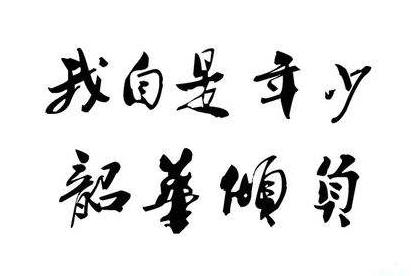 我自是年少
韶華傾負